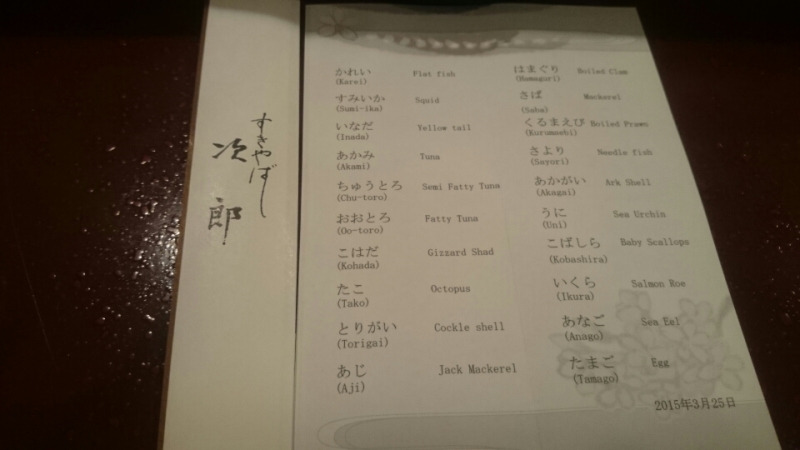 すきやばし
次郎
かれい Flat fish
(Karei)
すみいか Squid
(Sumi-ika)
いなだ Yellow tail
(Inada)
あかみ Tuna
(Akami)
ちゅうとろ Semi Fatty Tuna
(Chu-toro)
おおとろ Fatty Tuna
(Oo-toro)
こはだ Gizzard Shad
(Kohada)
たこ Octopus
(Tako)
とりがい Cockle shell
(Torigai)
あじ Jack Mackerel
(Aji)
はまぐり Boiled Clam
(Hamaguri)
さば Mackerel
(Saba)
くるまえび Boiled Prawn
(Kurumaebi)
さより Needle fish
(Sayori)
あかがい Ark Shell
(Akagai)
うに Sea Urchin
(Uni)
こばしら Baby Scallops
(Kobashira)
いくら Salmon Roe
(Ikura)
あなご Sea Eel
(Anago)
たまご Egg
(Tamago)
2015年3月25日